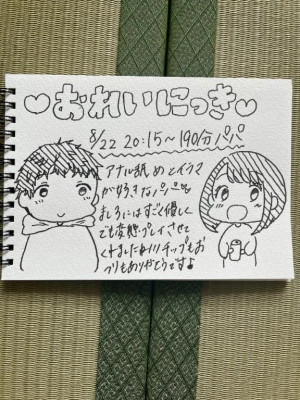 ♡おれいにっき♡
8/22 20:15〜190分パパ
アナル舐めとイラマ
が好きなパパ
ましろにはすごく優しく
でも変態プレイさせて
くれました チップもお
つりもありがとうです♪